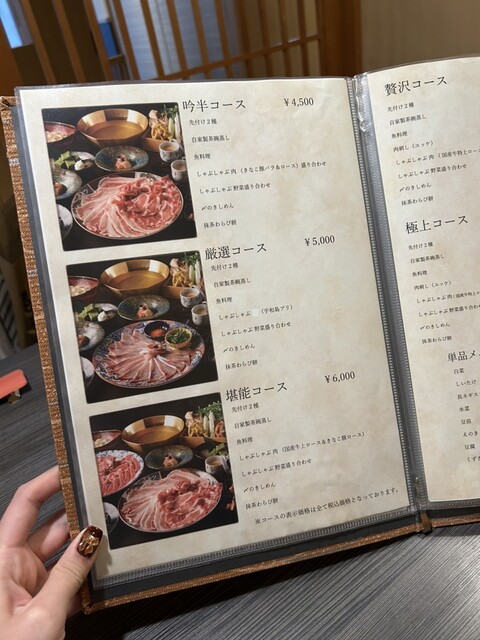 吟半コース ￥4,500
先付け2種
自家製茶碗蒸し
魚料理
しゃぶしゃぶ肉 (きなこ豚バラ&ロース) 盛り合わせ
しゃぶしゃぶ 野菜盛り合わせ
〆のきしめん
抹茶わらび餅
厳選コース ￥5,000
先付け2種
自家製茶碗蒸し
魚料理
しゃぶしゃぶ (宇和島ブリ)
しゃぶしゃぶ 野菜盛り合わせ
〆のきしめん
抹茶わらび餅
堪能コース ￥6,000
先付け2種
自家製茶碗蒸し
魚料理
しゃぶしゃぶ 肉 (国産牛上ロース&きなこ豚ロース)
しゃぶしゃぶ 野菜盛り合わせ
〆のきしめん
抹茶わらび餅
※コースの表示価格は全て税込価格となっております。
贅沢コース
先付け2種
自家製茶碗蒸し
魚料理
肉刺し (ユッケ)
しゃぶしゃぶ 肉 (国産牛特上ロー
しゃぶしゃぶ 野菜盛り合わせ
〆のきしめん
抹茶わらび餅
極上コース
先付け2種
自家製茶碗蒸し
魚料理
肉刺し (ユッケ)
しゃぶしゃぶ 肉 (国産牛特上ロ
しゃぶしゃぶ 野菜盛り合わせ
〆のきしめん
抹茶わらび餅
単品メ
白菜
しいたけ
長ネギス
水菜
豆苗
えのき
豆腐
くずき